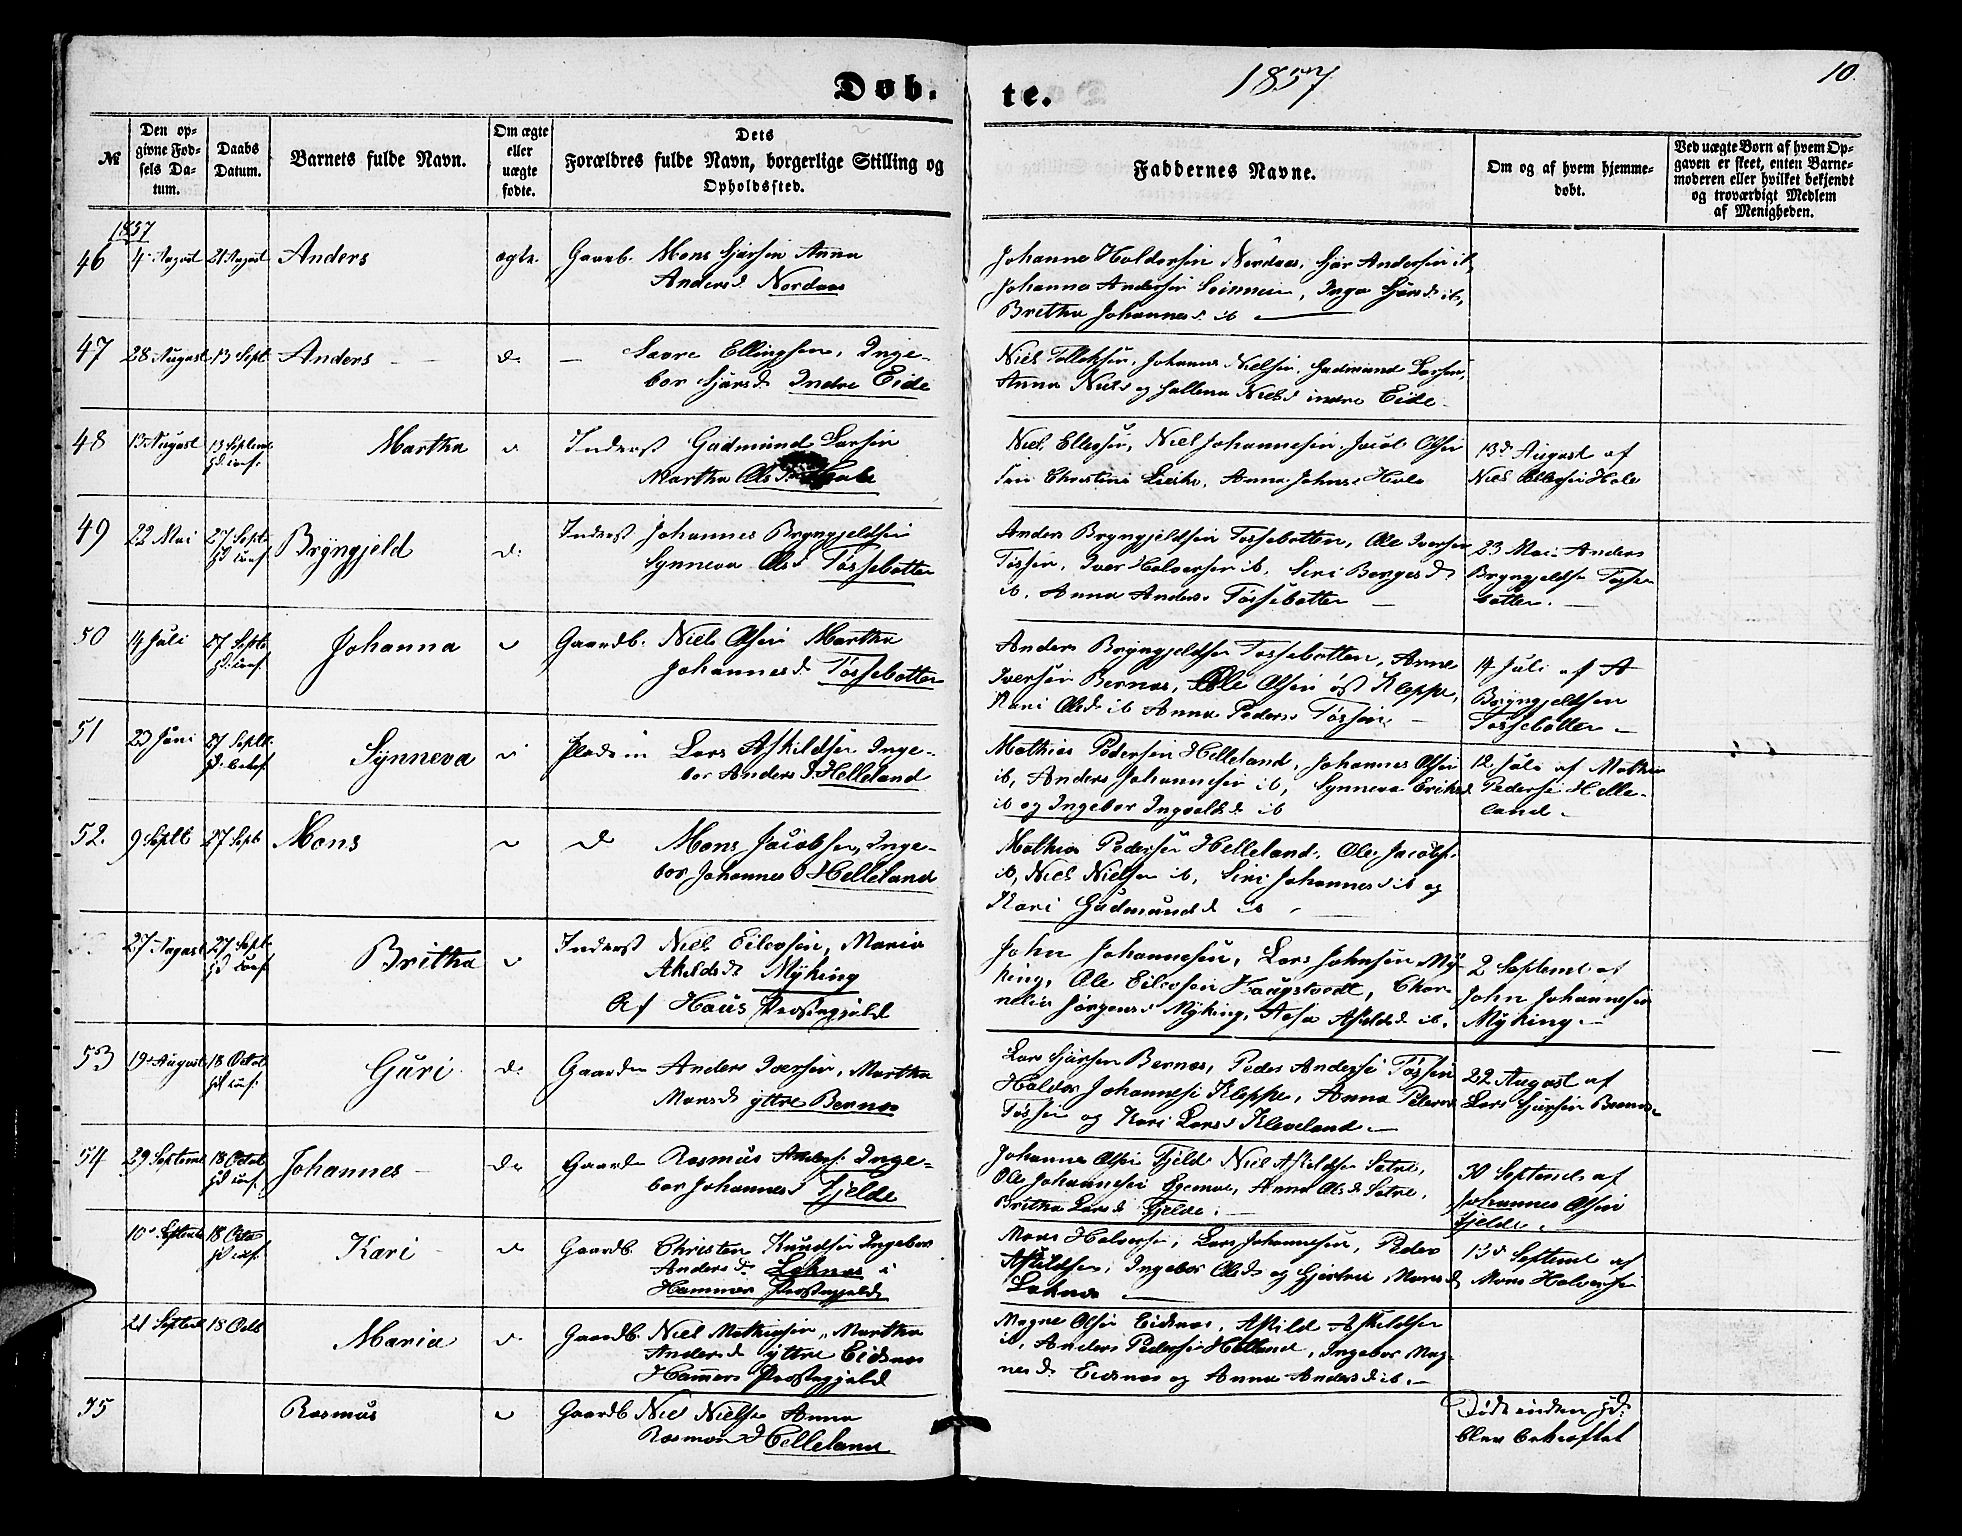 Døb-
te.
1857
10.
№
Den op-
givne Fød-
sels Da-
tum.
Daabs
Datum.
Barnets fulde Navn.
Om ægte
eller
uægte
fødte.
Dets
Forældres fulde Navn, borgerlige Stilling og
Opholdssted.
Faddernes Navne.
Om og af hvem hjemme-
døbt.
Ved uægte Børn af hvem Op-
gaven er skeet, enten Barne-
moderen eller hvilket bekjendt
og troværdigt Medlem
af Menigheden.
1857
46 4 August 21 August Anders ægte. Gaardb. Mons Sjursen Anna
Andersd Nordaas
Johannes Haldorsen Nordaas, Sjur Andersen ib,
Johannes Andersen, Inga Sjursd ib,
Britha Johannesd ib
47 28 August 13 Sept. Anders d. — Ellingsen, Inge-
bor Sjursd Indre Eide
Niels Tolleksen, Johannes Nielsen, Gudmund Larsen,
Anna Nielsd og Nielsd indre Eide
48 13 August 13 Septemb. Martha d Inderst Gudmund Larsen
Martha Olsd
Niels Ellingsen, Niels Johannesen, Jacob Olsen
Anna Johnsd
13d August af
Niels
49 22 Mai 27 Sept. Bryngjeld d. Inderst Johannes Bryngjeldsen
Synneva Olsd Tossebotten
Anders Bryngjeldsen Tossebotten, Ole Iversen
Iver Halversen ib. Siri Borgesd
ib. Anna Andersd Tossebotten
23 Mai Anders
Bryngjeldsen Tosse-
botten.
50 14 Juli 27 Septb. Johanna d Gaardb. Niels Olsen Martha
Johannesd Tossebotten
Anders Bryngjeldsen Tossebotten, Arne
Iversen Bernæs, Ole Olsen Kleppe,
Kari Olsd ib Anna Pedersd
14 Juli af A
Bryngjeldsen
Tossebotten
51 23 Juni 27 Septb. Synneva d Plads Lars Askildsen Inge-
bor Andersd Helleland
Mathias Pedersen Helleland, Johannes Olsen
ib, Anders Johannesen ib, Synneva Eriksd
ib og Ingebor Ingvaldsd ib
12 Juli af Mathias
Pedersen Helle-
land.
52. 9 Septb 27 Sept Mons d d Mons Jacobsen, Inge-
bor Johannesd Helleland
Mathias Pedersen Helleland, Ole Jacobs.
ib, Niels Nielsen ib, Siri Johannesd ib og
Kari Gudmundsd ib
27 August 27 Sept. Britha d Inderst Niels Eilevsen, Maria
Mÿking
Af Haus Præstegjæld
John Johannesen, Lars Johnsen Mÿ-
king, Ole Eilevsen Haugstvedt, Chor-
nelia Jørgensd Mÿking, Aasa Askildsd ib.
2 Septemb af
John Johannesen
Mÿking.
53 19 August 18 Octob Guri d. Gaardm Anders Iversen, Martha
Monsd yttre Bernæs
Lars Sjursen Bernæs, Peder Andersen
Haldor Johannesen Kleppe, Anna Pedersd
og Kari Larsd Kleveland
22 August af
Lars Sjursen Bernæs
54 29 Septemb 18 Octob Johannes d Gaardm Rasmus Anders. Inge-
bor Johannesd Fjelde
Johannes Olsen Fjeld Niels Askildsen Sætre,
Ole Johannesen, Anna Olsd Sætre,
Britha Larsd Fjelde.
30 Septemb af
Johannes Olsen
Fjelde.
10 Septemb 18 Octo Kari d Gaardb. Christen Knudsen Ingebor
Andersd i
Hammer Præstegjæld
Mons Halversen, Lars Johannesen, Peder
Askildsen, Ingebor Olsd og Monsd
13d Septemb af
Mons Halversen
21 Septemb 18 Octb Maria d. Gaardb. Niels Mathiasen, Martha
Andersd yttre Eidsnæs
Hamers Præstegjæld
Magne Olsen Eidsnæs, Askild Askildsen
ib, Anders Pedersen, Ingebor Mag-
nesd Eidsnæs og Anna Andersd ib.
55 Rasmus d Gaardb Niels Nielsen Anna
Rasmusd Helleland
Døde inden
blev bekræftet